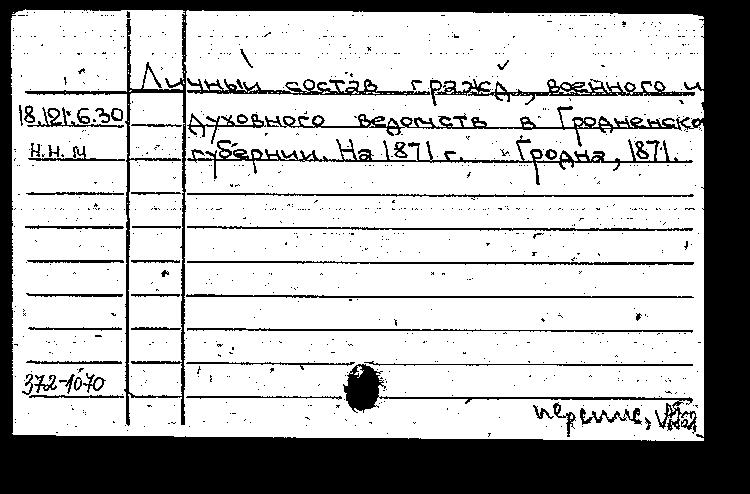 Личный состав гражд., военного и
18.121.6.30 духовного ведомств в Гродненско
н.н. м губернии. На 1871 г. Гродна, 1871.
372-1070